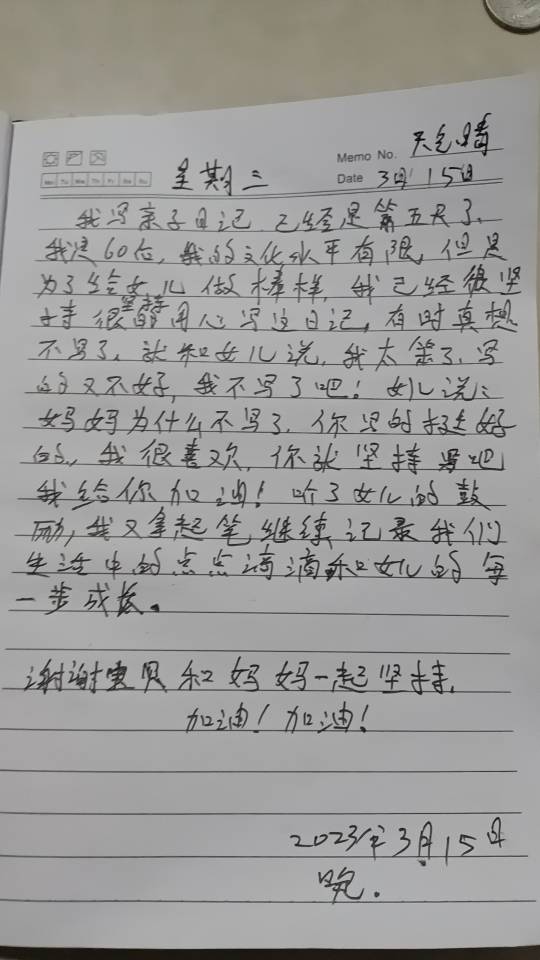 Memo No. 天气晴
Mo Tu We Th Fr Sa Su
星期三 Date 3月15日
我写亲子日记,已经是第五天了,
我是60后,我的文化水平有限,但是
为了给女儿做榜样,我已经很坚
持很坚持用心写这日记,有时真想
不写了,就和女儿说,我太笨了,写
的又不好,我不写了吧!女儿说:
妈妈为什么不写了,你写的挺好
的,我很喜欢,你就坚持写吧
我给你加油!听了女儿的鼓
励,我又拿起笔继续记录我们
生活中的点点滴滴和女儿的每
一步成长。
谢谢宝贝和妈妈一起坚持,
加油!加油!
2023年3月15日
晚.